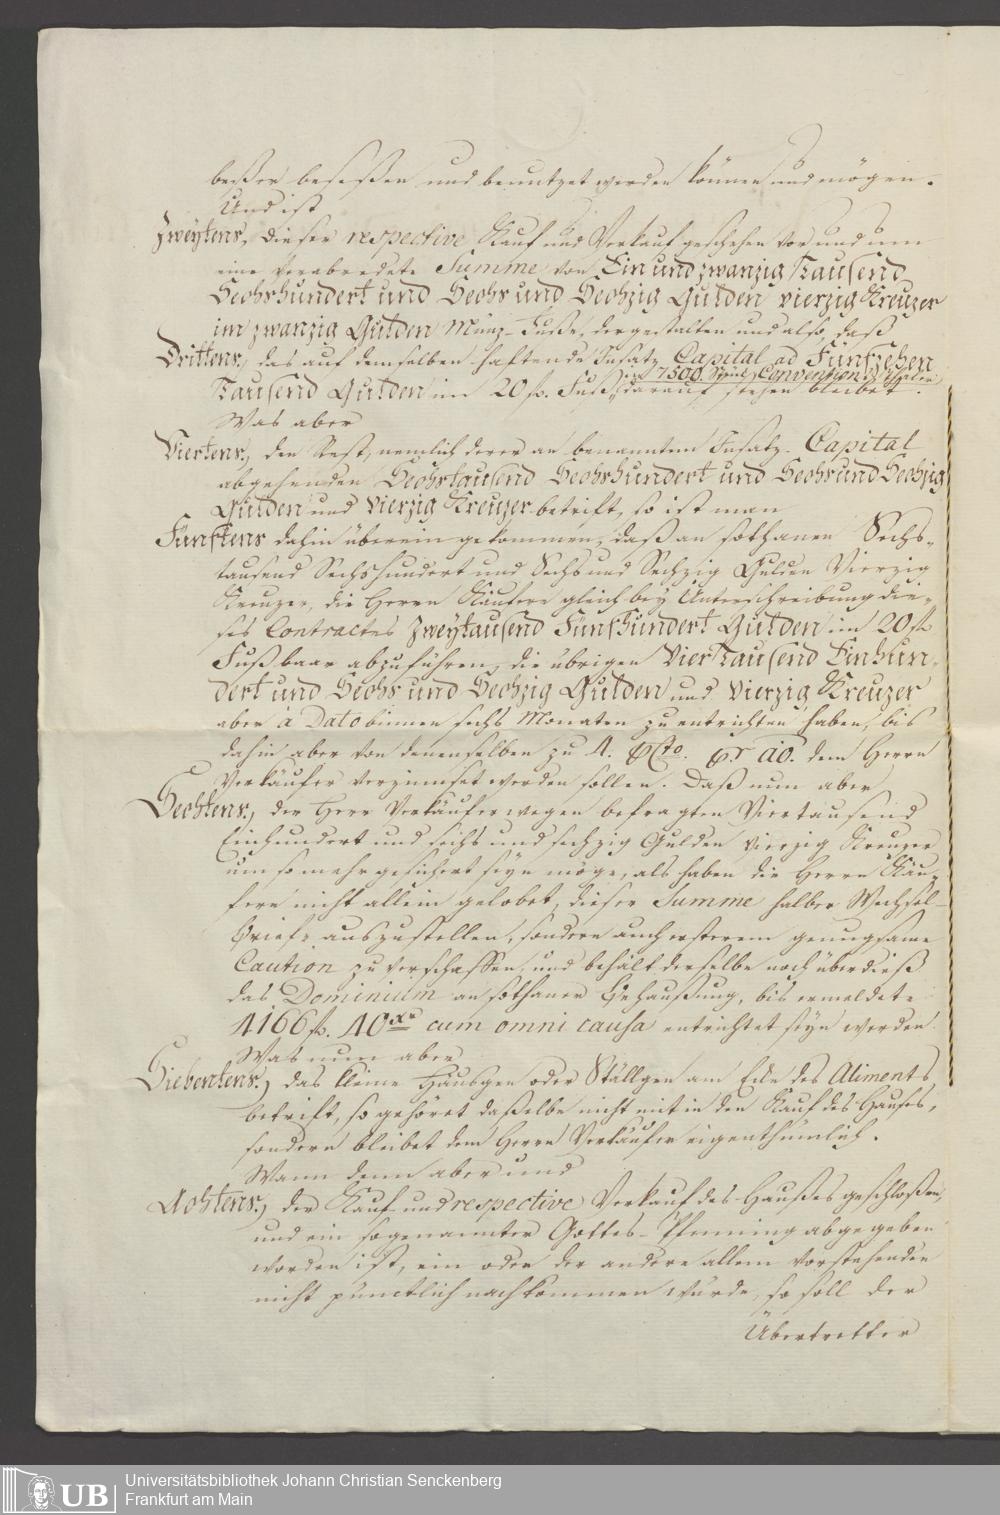 beßer beseßen und benutzet werden können und mögen.
Und ist
Zweytens, dieser respective Kauf und Verkauf geschehen vor und um
eine verabredete Summe von Ein und zwanzig Tausend
Sechshundert und Sechs und Sechzig Gulden vierzig Kreuzer
im zwanzig Gulden Münz-Fuße, dergestalten und also, daß
Drittens, das auf demselben haftende Insatz Capital ad Fünfzehen
in 7500 Stück Conventions Thaler
Tausend Gulden im 20 fl. Fuß, darauf stehen bleibet.
Was aber
Viertens, den Rest, nemlich derer an benanntem Insatz-Capital
abgehenden Sechstausend Sechshundert und Sechs und Sechzig
Gulden und Vierzig Kreuzer betrift, so ist man
Fünftens dahin übereingekommen, daß an sothanen Sechs-
tausend Sechshundert und Sechs und Sechzig Gulden Vierzig
Kreuzer, die Herrn Käufere gleich bey Unterschreibung die-
ses Contractes Zweytausend Fünfhundert Gulden im 20 fl.
Fuß baar abzuführen, die übrigen Vier Tausend Einhun-
dert und Sechs und Sechzig Gulden und Vierzig Kreuzer
aber à Dato binnen sechs Monaten zu entrichten haben, bis
dahin aber von denenselben zu 4. pCto. pr ao. dem Herrn
Verkäufer verzinnset werden sollen. Daß nun aber
Sechstens, der Herr Verkäufer wegen befragten Viertausend
Einhundert und sechs und sechzig Gulden vierzig Kreuzer
um so mehr gesichert seyn möge, als haben die Herrn Käu-
fere nicht allein gelobet, dieser Summe halber Wechsel-
Briefe auszustellen, sondern auch ersterem genugsame
Caution zu verschaffen, und behält derselbe noch überdieß
das Dominium an sothaner Behaußung, bis ermeldete
4166 fl. 40 xr cum omni causa entrichtet seyn werden.
Was nun aber
Siebentens, das kleine Häusgen oder Ställgen am Ecke des Aliments
betrift, so gehöret daßelbe nicht mit in den Kauf des Hauses,
sondern bleibet dem Herrn Verkäufer eigenthümlich.
Wann denn aber und
Achtens, der Kauf und respective Verkauf des Haußes geschloßen,
und ein sogenannter Gottes-Pfenning abgegeben
worden ist, ein oder der andere allem Vorstehenden
nicht pünctlich nachkommen würde, so soll der
Übertretter
UB
Universitätsbibliothek Johann Christian Senckenberg
Frankfurt am Main